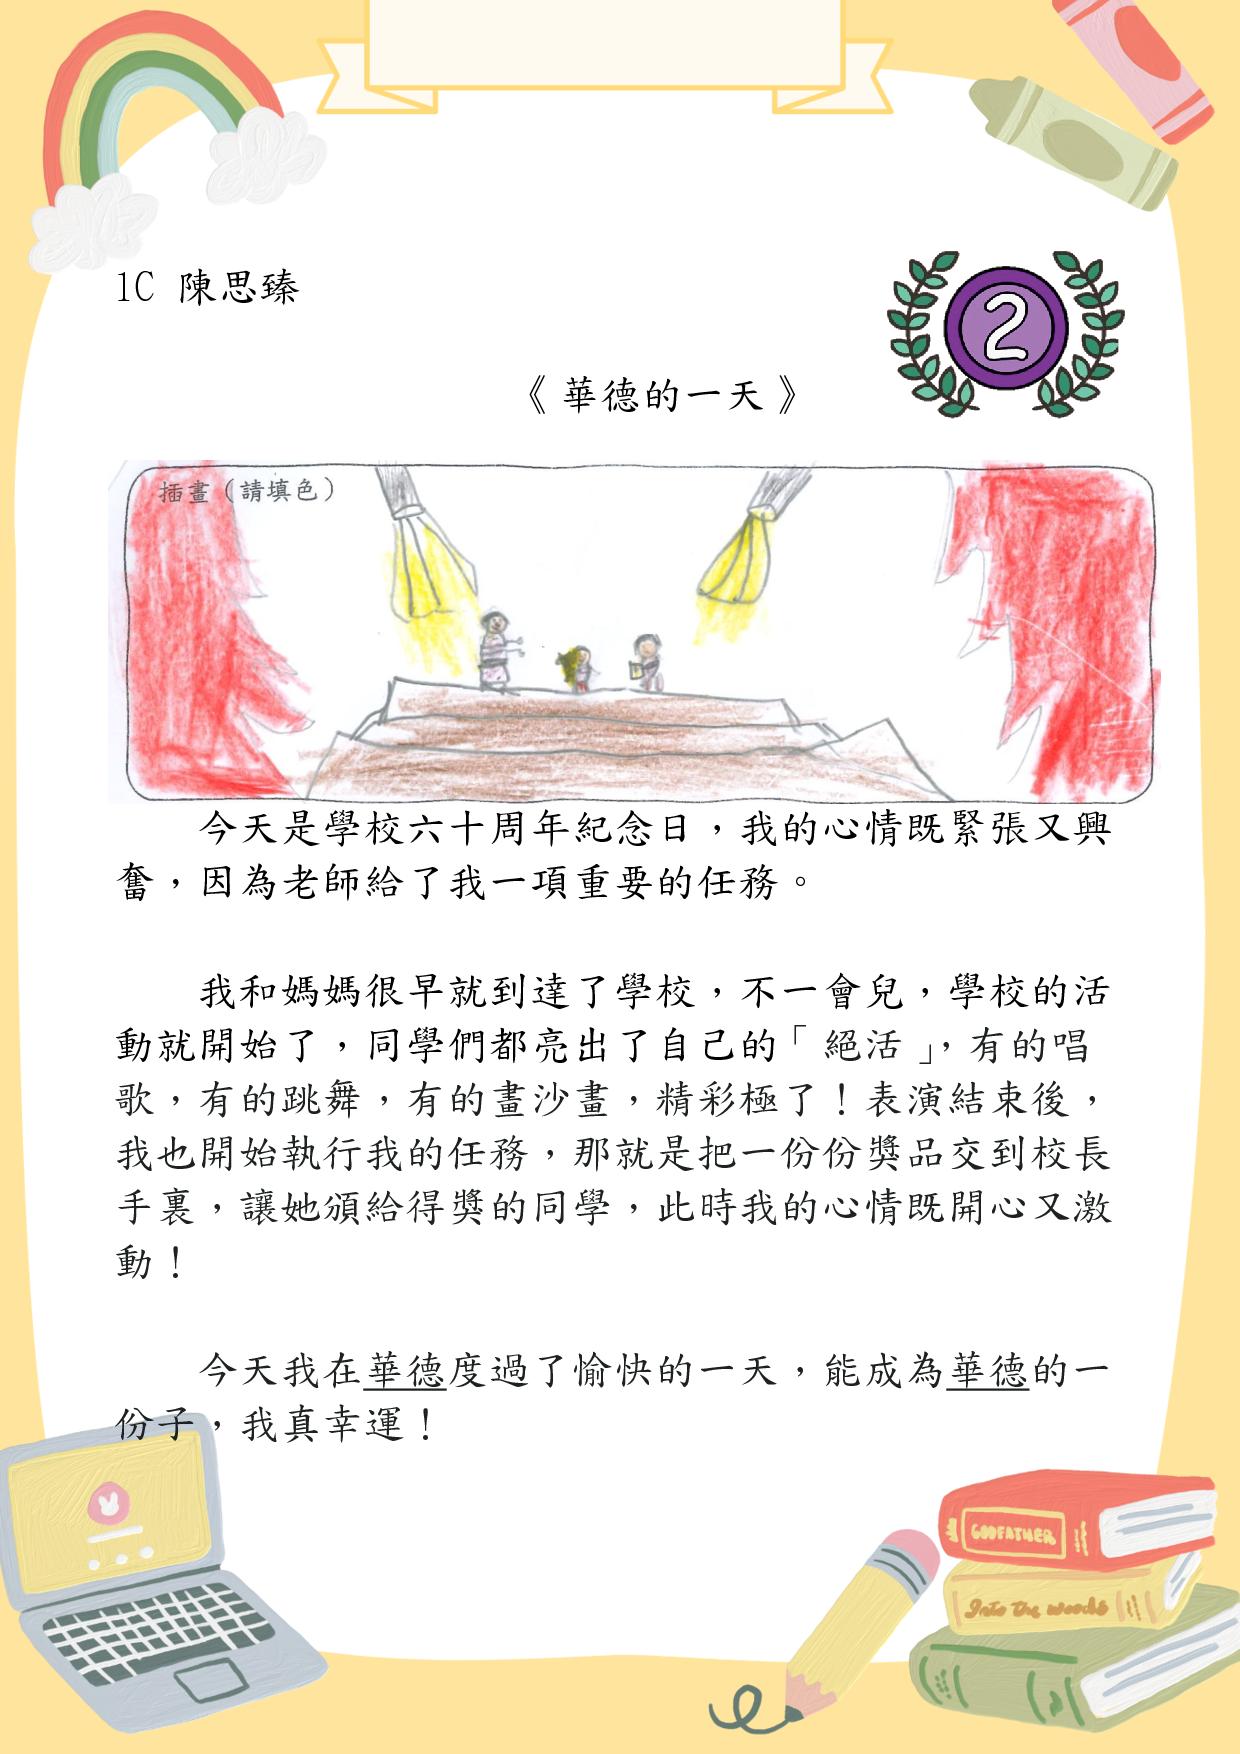 1C 陳思臻
2
《華德的一天》
插畫（請填色）
今天是學校六十周年紀念日，我的心情既緊張又興
奮，因為老師給了我一項重要的任務。
我和媽媽很早就到達了學校，不一會兒，學校的活
動就開始了，同學們都亮出了自己的「絕活」，有的唱
歌，有的跳舞，有的畫沙畫，精彩極了！表演結束後，
我也開始執行我的任務，那就是把一份份獎品交到校長
手裏，讓她頒給得獎的同學，此時我的心情既開心又激
動！
今天我在華德度過了愉快的一天，能成為華德的一
份子，我真幸運！
GODFATHER
Into the woods